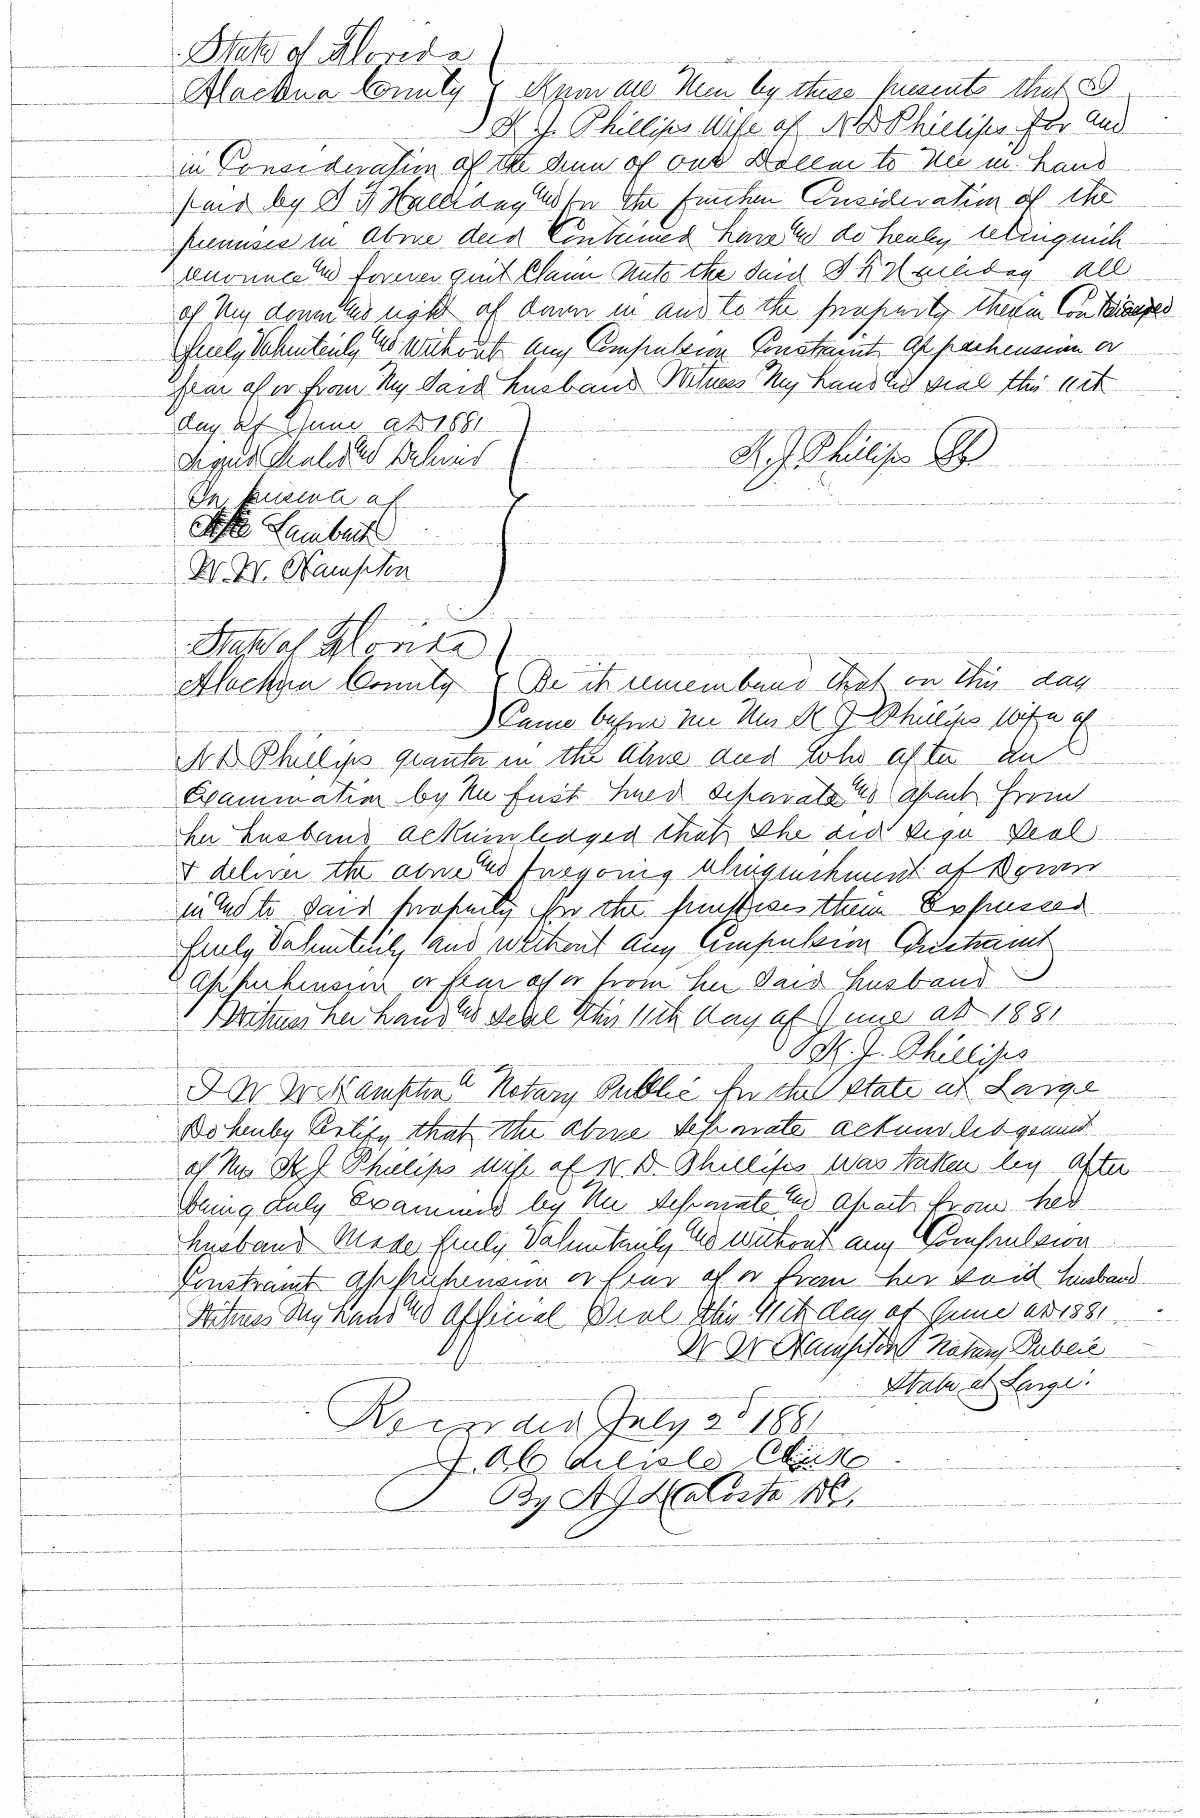 State of Florida
Alachua County } Know all Men by these presents that I
K. J. Phillips wife of N D Phillips for and
in Consideration of the sum of one Dollar to me in hand
paid by S F Halliday and for the further Consideration of the
premises in above deed Contained have and do hereby relinquish
renounce and forever quit Claim unto the said S F Halliday all
of my dower and right of dower in and to the property therein
freely Voluntarily and without any Compulsion Constraint apprehension or
fear of or from my said husband Witness my hand and seal this 11th
day of June AD 1881
Signed Sealed and Delivered
In presence of
K. J. Phillips
Lambert
W. W. Hampton
State of Florida
Alachua County } Be it remembered that on this day
Came before me Mrs K J Phillips wife of
N D Phillips grantor in the above deed who after an
Examination by me first had separate and apart from
her husband acknowledged that she did sign seal
& deliver the above and foregoing relinquishment of Dower
in and to said property for the purposes therein Expressed
freely Voluntarily and without any Compulsion Constraint
apprehension or fear of or from her said husband
Witness her hand and seal this 11th day of June AD 1881
K. J. Phillips
I W W Hampton a Notary Public for the State at Large
Do hereby Certify that the above separate acknowledgement
of Mrs K J Phillips wife of N. D. Phillips was taken by after
being duly Examined by me separate and apart from her
husband Made freely Voluntarily and without any Compulsion
Constraint apprehension or fear of or from her said husband
Witness my hand and official Seal this 11th day of June AD 1881
W W Hampton Notary Public
State at Large.
Recorded July 2d 1881
J. A Carlisle Clerk
By A J DaCosta DC.